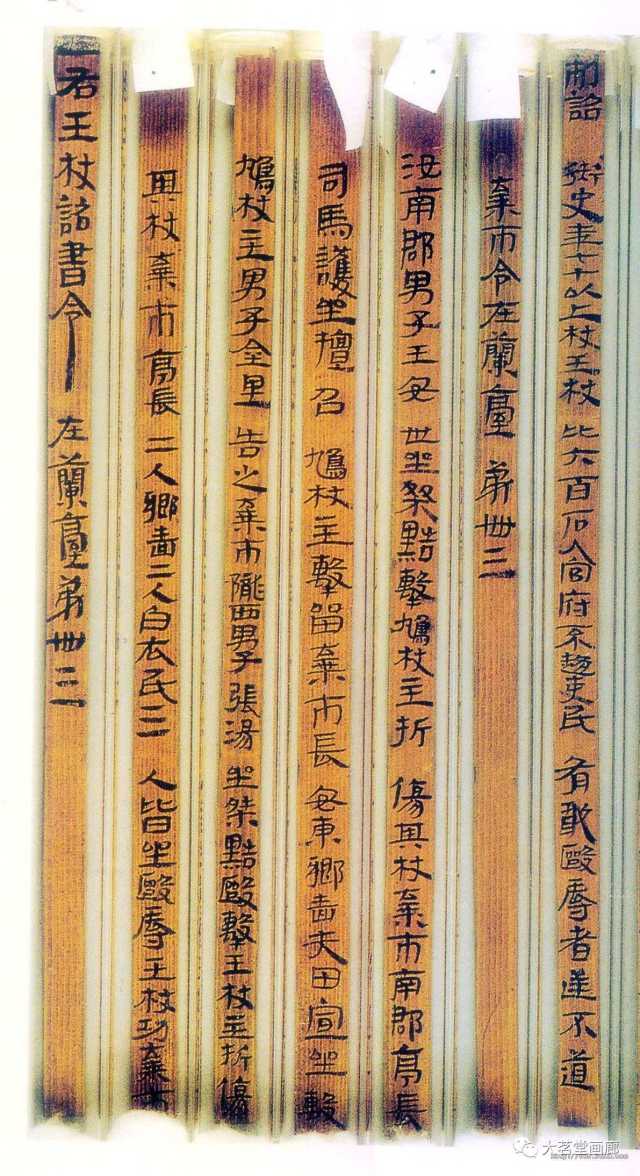 制詔御史年七十以上杖王杖比六百石入官府不趨吏民有敢毆辱者逆不道
棄市令在蘭臺第卌三
汝南郡男子王安世坐桀黠擊鳩杖主折傷其杖棄市南郡亭長
司馬護坐擅召鳩杖主擊留棄市長安東鄉嗇夫田宣坐毄
鳩杖主男子金里告之棄市隴西男子張湯坐桀黠毆擊王杖主折傷
其杖棄市亭長二人鄉嗇二人白衣民三人皆坐毆辱王杖功棄市
右王杖詔書令在蘭臺第卌三
大茗堂画廊